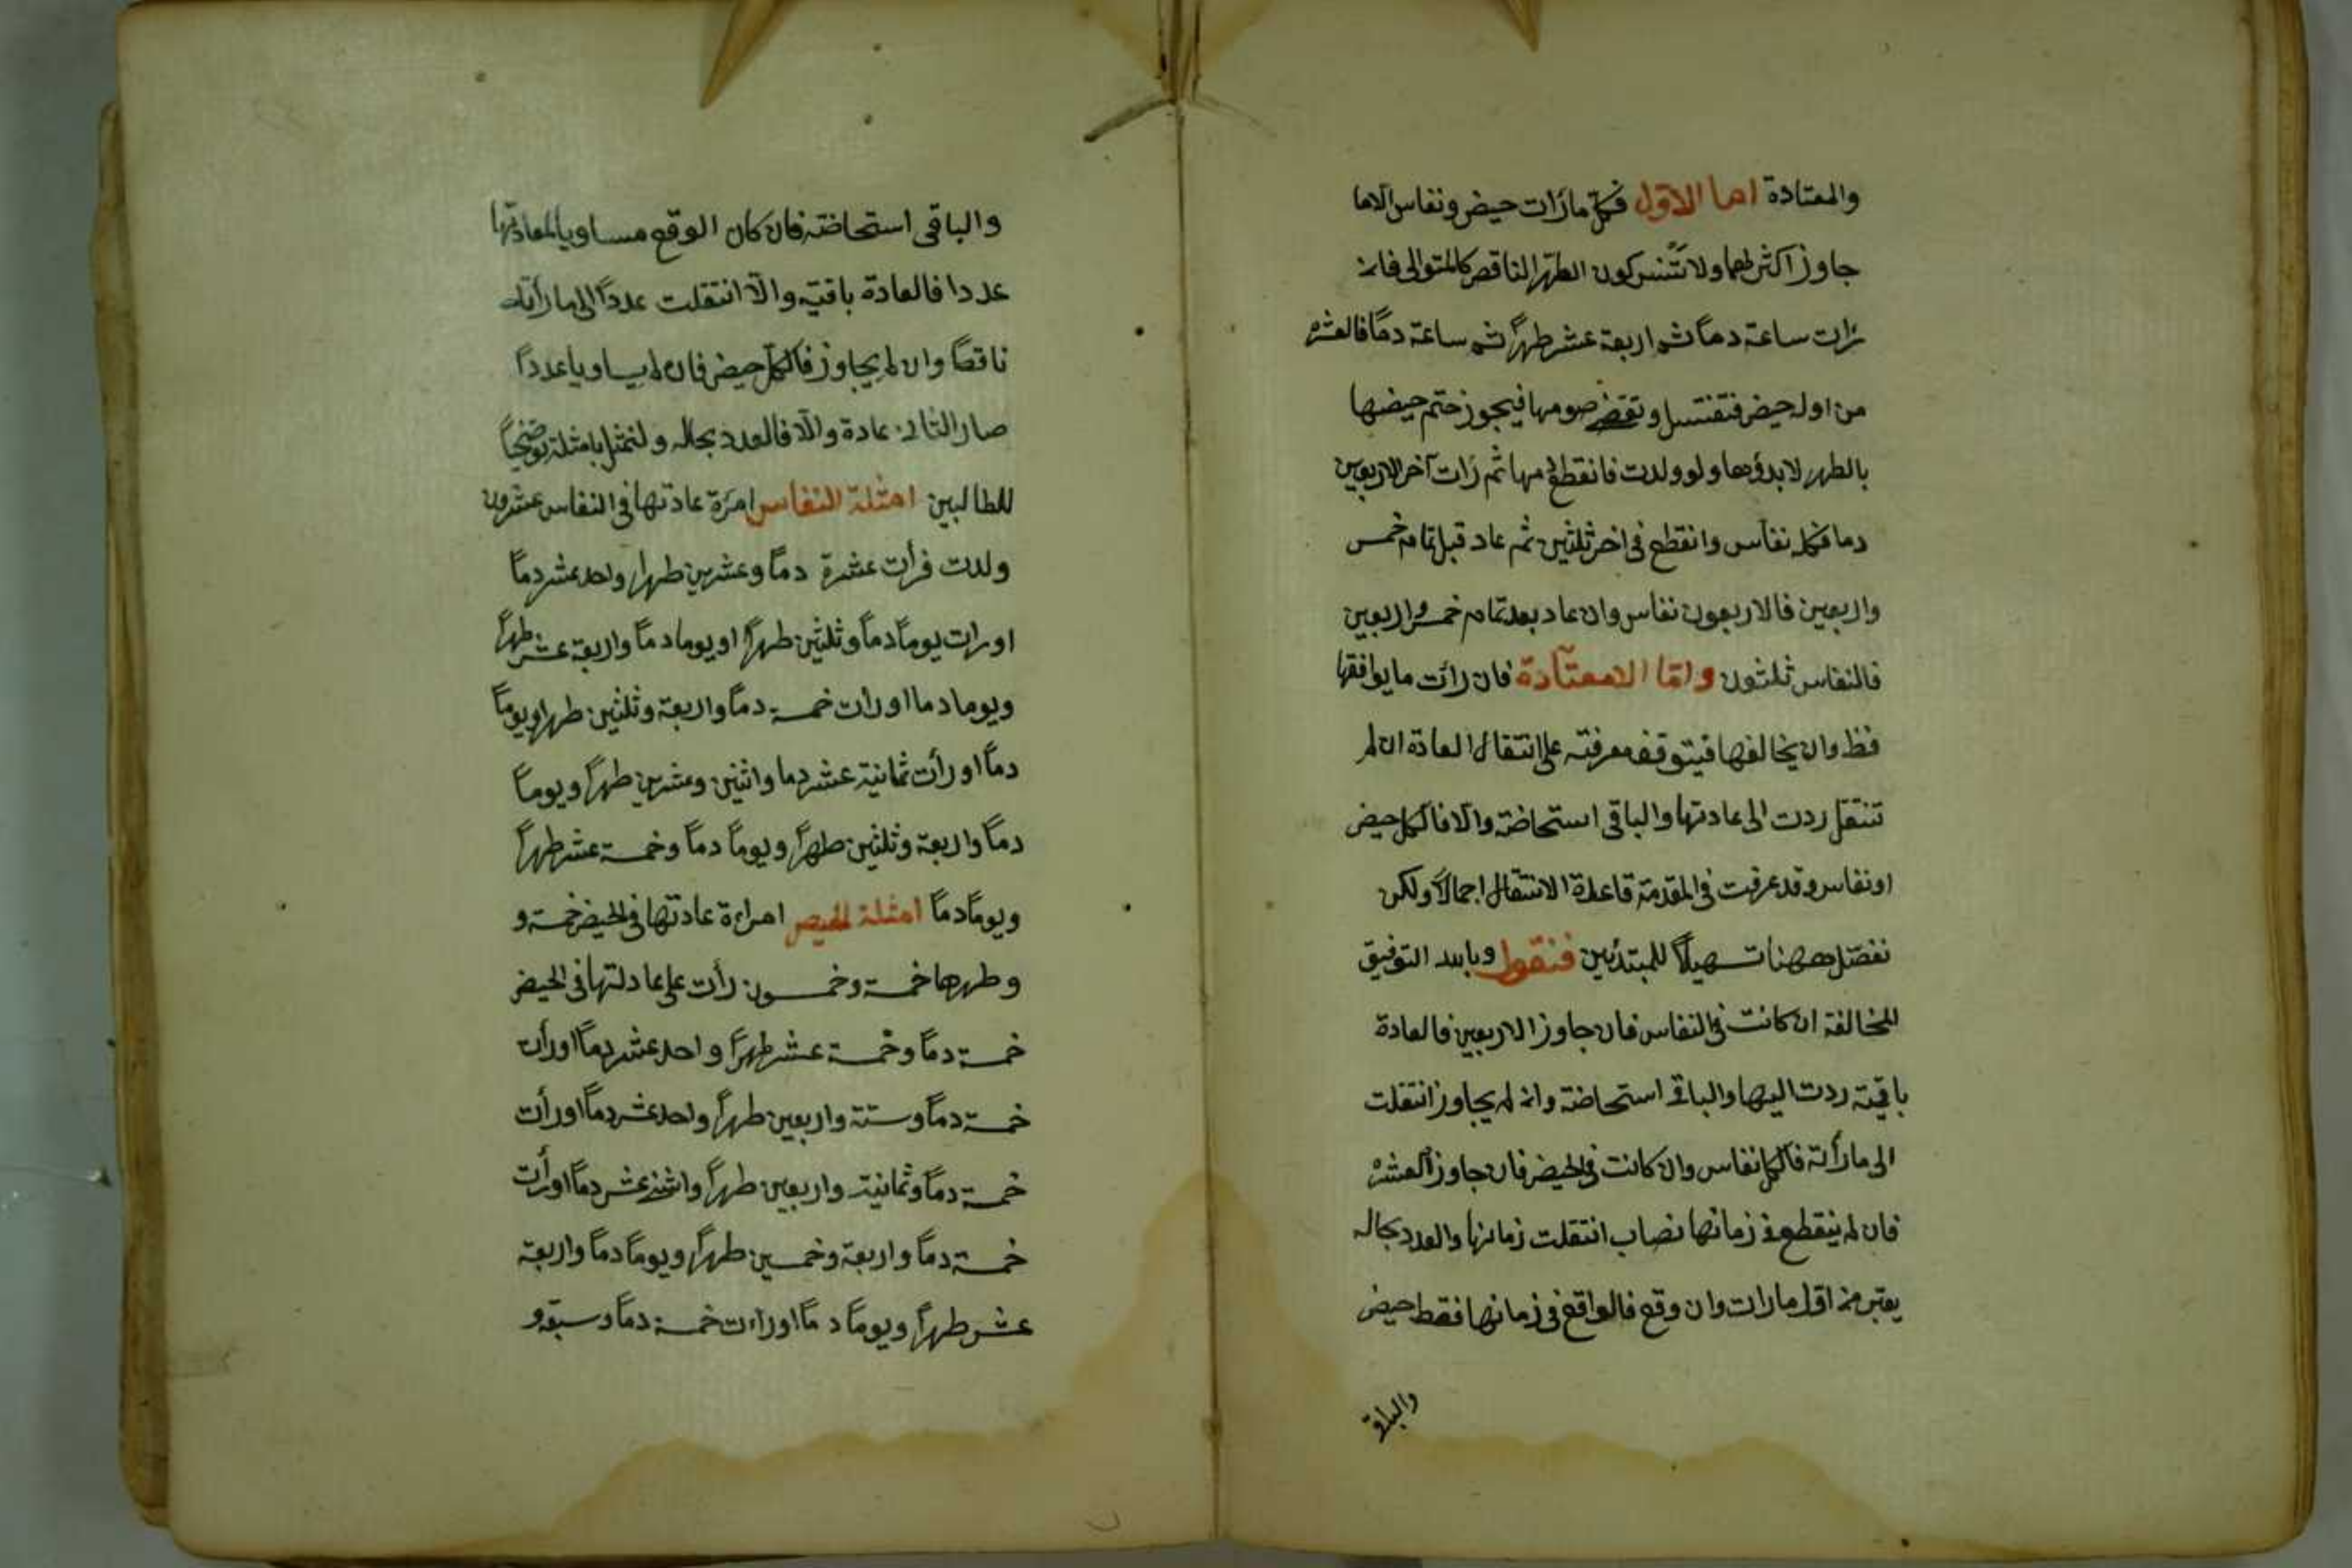 والمعتادة اما الاول فكل مارات حيض ونفاس الاما
جاوز اكثرهما ولا تنس كون الطهر الناقص كالمتوالى فان
رات ساعة دما ثم اربعة عشر طهرا ثم ساعة دما فالعشرة
من اوله حيض فتغتسل وتقضى صومها فيجوز ختم حيضها
بالطهر لا بدؤها ولو ولدت فانقطع دمها ثم رات آخر الاربعين
دما فكله نفاس وانقطع فى اخر ثلثين ثم عاد قبل تمام خمس
واربعين فالاربعون نفاس وان عاد بعد تمام خمس واربعين
فالنفاس ثلثون واما المعتادة فان رات ما يوافقها
فظ وان يخالفها فيتوقف معرفته على انتقال العادة ان لم
تنتقل ردت الى عادتها والباقى استحاضة والا فالكل حيض
او نفاس وقد عرفت فى المقدمة قاعدة الانتقال اجمالا ولكن
نفصل ههنا تسهيلا للمبتدئين فنقول وبالله التوفيق
المخالفة ان كانت فى النفاس فان جاوز الاربعين فالعادة
باقية ردت اليها والباقى استحاضة وان لم يجاوز انتقلت
الى ما رأته فالكل نفاس وان كانت فى الحيض فان جاوز العشرة
فان لم ينقطع فى زمانها نصاب انتقلت زمانها والعدد بحاله
يعتبر من اول مارات وان وقع فالواقع فى زمانها فقط حيض
والباقى
والباقى استحاضة فان كان الوقع مساويا لعادتها
عددا فالعادة باقية والا انتقلت عددا الى ما رأته
ناقصا وان لم يجاوز فالكل حيض فان لم يساويا عددا
صار الثانى عادة والا فالعدد بحاله ولنمثل بامثلة توضيحا
للطالبين امثلة النفاس امرة عادتها فى النفاس عشرون
ولدت فرأت عشرة دما وعشرين طهرا واحد عشر دما
او رات يوما دما وثلثين طهرا او يوما دما واربعة عشر طهرا
ويوما دما او رات خمسة دما واربعة وثلثين طهرا ويوما
دما او رأت ثمانية عشر دما واثنين وعشرين طهرا ويوما
دما واربعة وثلثين طهرا ويوما دما وخمسة عشر طهرا
ويوما دما امثلة الحيض امراءة عادتها فى الحيض خمسة و
وطهرها خمسة وخمسون رأت على عادلتها فى الحيض
خمسة دما وخمسة عشر طهرا واحد عشر دما او رأت
خمسة دما وستة واربعين طهرا واحد عشر دما او رأت
خمسة دما وثمانية واربعين طهرا واثنى عشر دما او رأت
خمسة دما واربعة وخمسين طهرا ويوما دما واربعة
عشر طهرا ويوما دما او رات خمسة دما وسبعة و